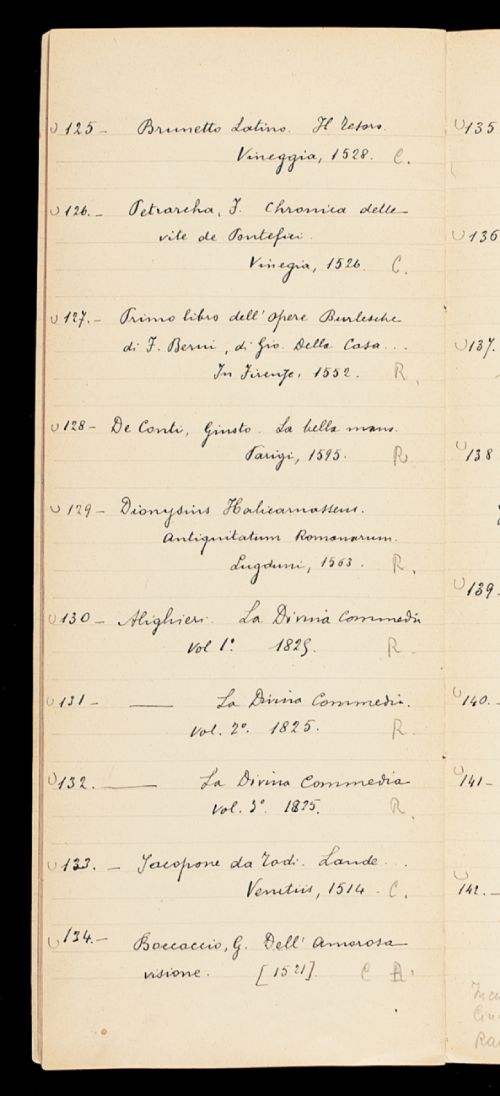 125 - Brunetto Latino. Il Tesoro.
Vineggia, 1528. C.
126. - Petrarcha, F. Chronica delle
vite de Pontefici.
Vinegia, 1526. C.
127. - Primo libro dell' Opere Burlesche
di F. Berni, di Gio. Della Casa...
In Firenze, 1552. R.
128 - De Conti, Giusto. La bella mano.
Parigi, 1595. R.
129 - Dionysius Halicarnasseus.
Antiquitatum Romanarum.
Lugduni, 1563. R.
130 - Alighieri. La Divina Commedia
vol 1º 1825. R.
131 - —— La Divina Commedia.
vol. 2º. 1825. R.
132. —— La Divina Commedia
vol. 3º. 1825. R.
133. - Jacopone da Todi. Laude...
Venetiis, 1514. C.
134. - Boccaccio, G. Dell' Amorosa
visione. [1521]. C R.
135
136
137.
138
139.
140.
141-
142. -